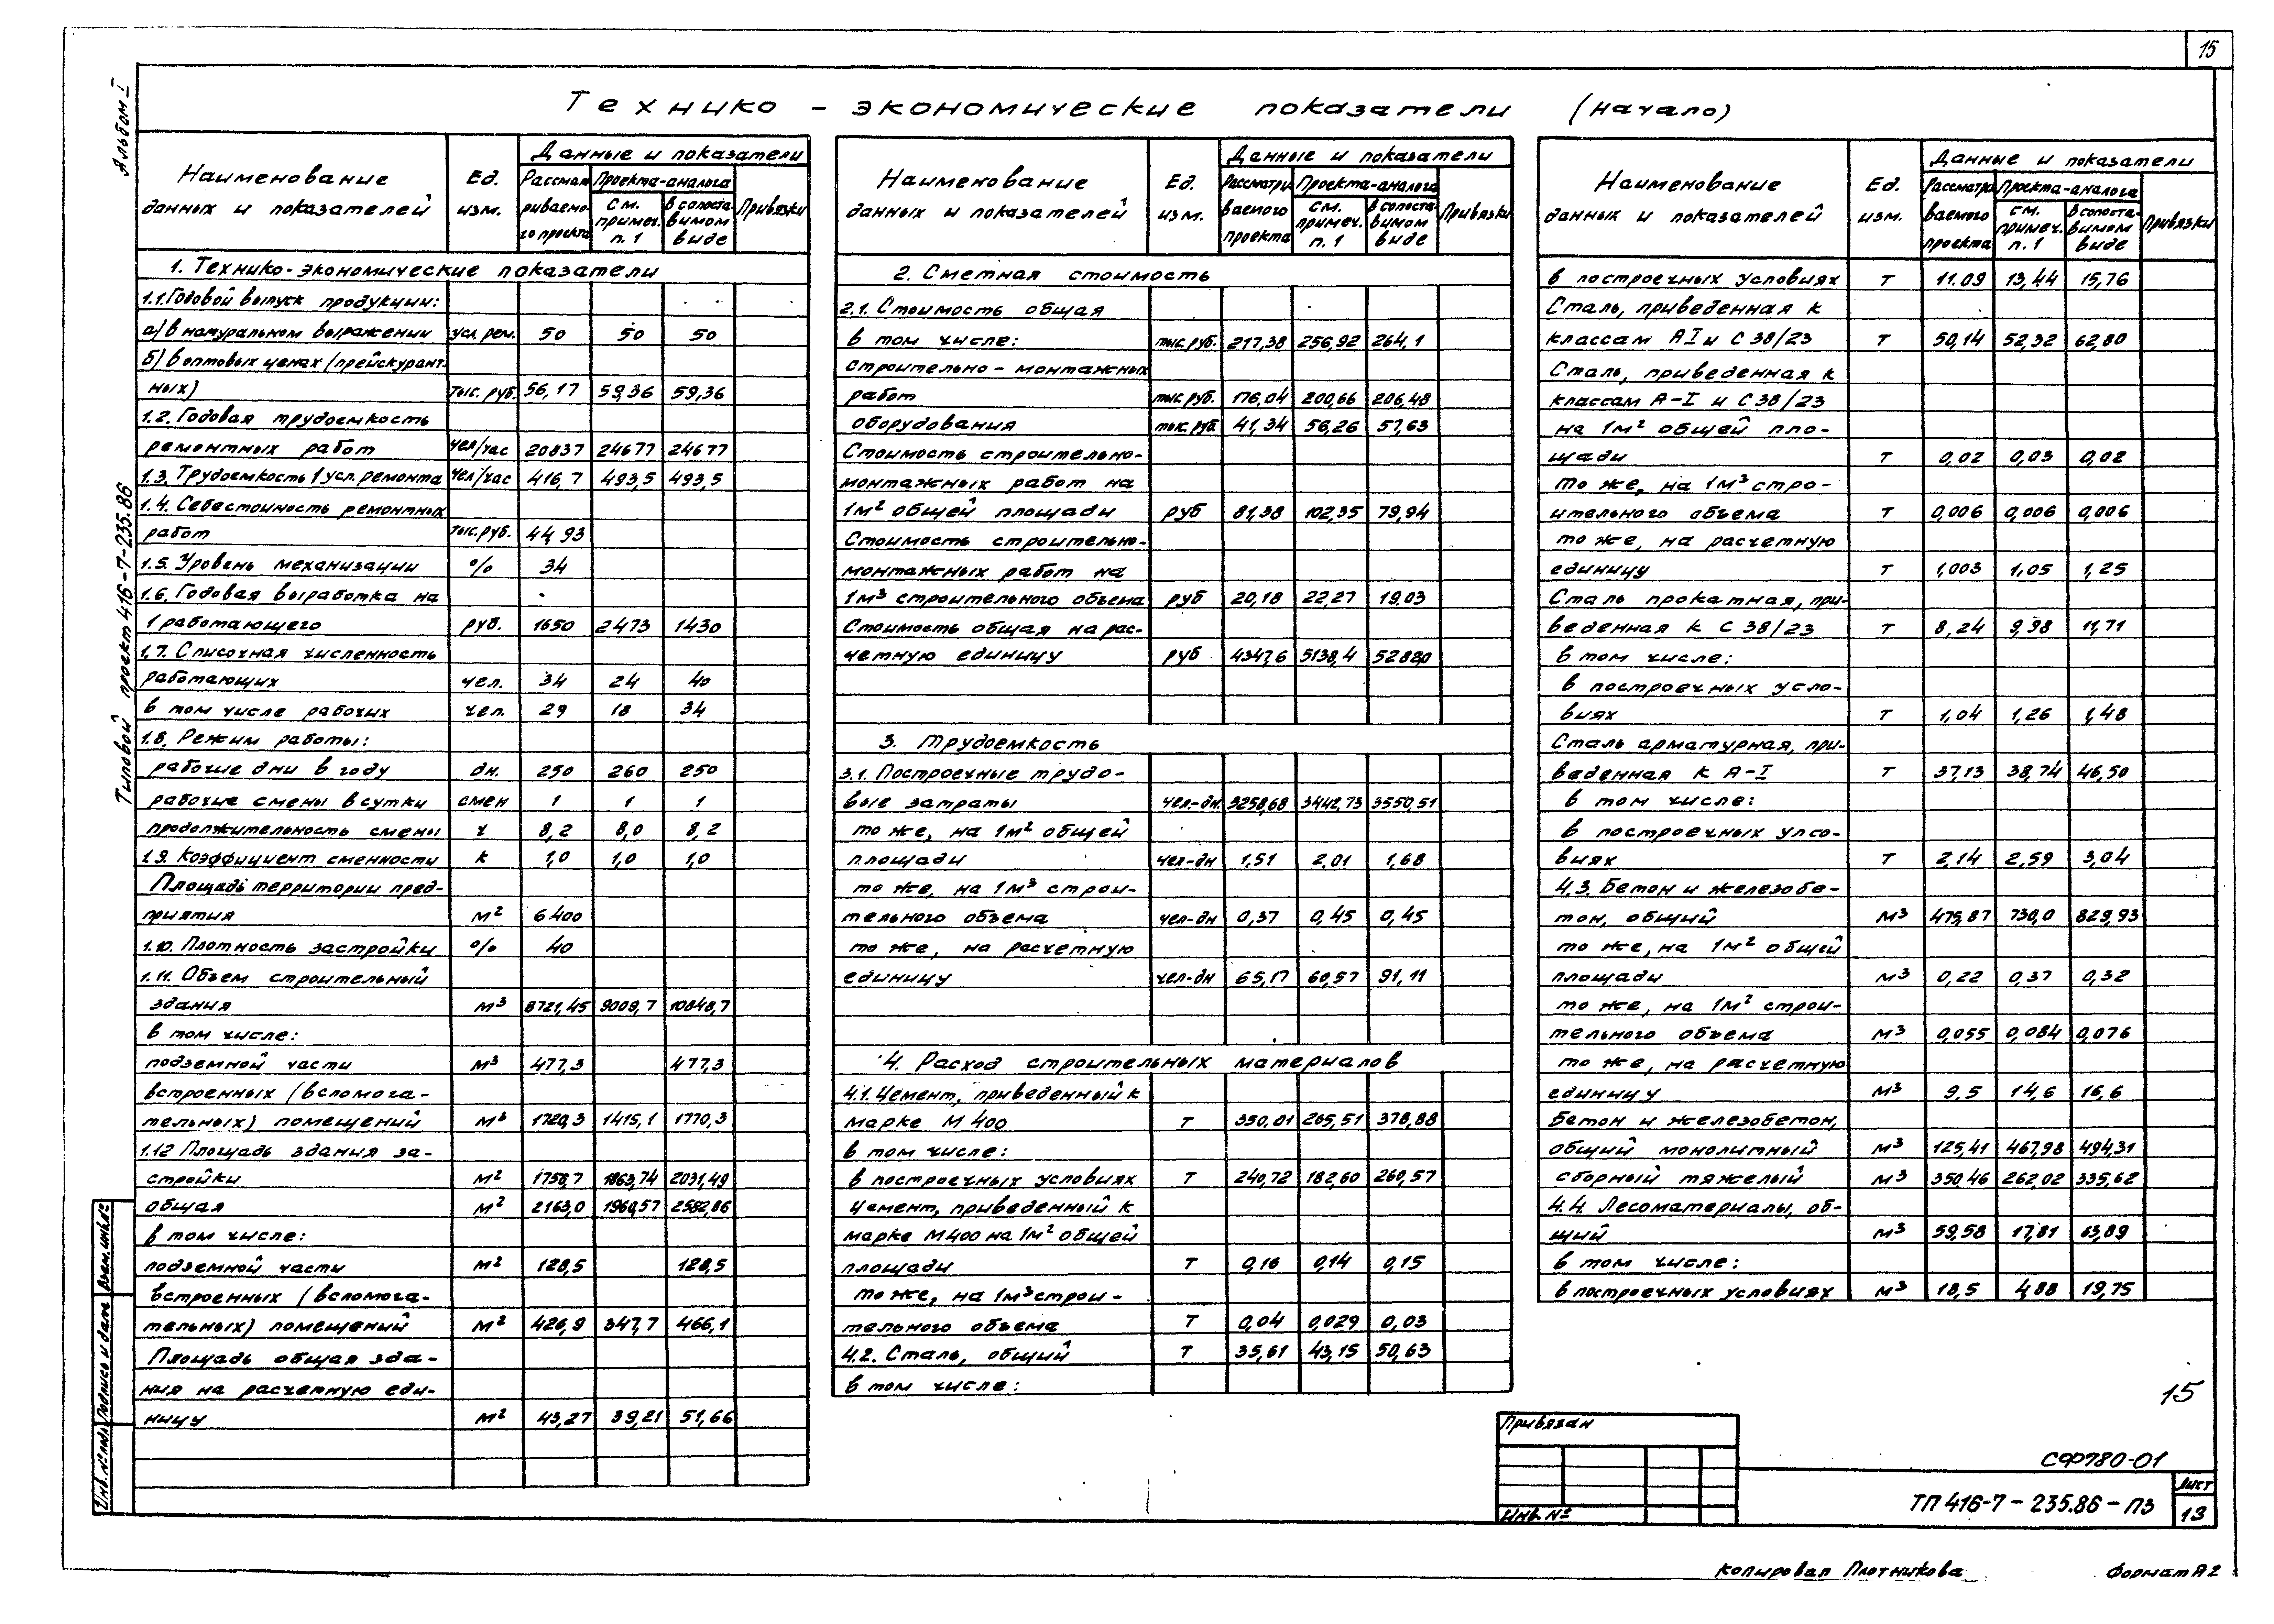 15
Альбом I
Типовой проект 416-7-235.86
Технико - экономические показатели (начало)
Наименование данных и показателей
Ед. изм.
Данные и показатели
Рассматриваемого проекта
Проекта-аналога
см. примеч. п. 1
в сопоставимом виде
Привязки
1. Технико-экономические показатели
1.1. Годовой выпуск продукции:
а) в натуральном выражении усл. рем. 50 50 50
б) в оптовых ценах (прейскурант-
ных) тыс. руб. 56,17 59,36 59,36
1.2. Годовая трудоемкость
ремонтных работ чел/час 20837 24677 24677
1.3. Трудоемкость 1 усл. ремонта чел/час 416,7 493,5 493,5
1.4. Себестоимость ремонтных
работ тыс. руб. 44,93
1.5. Уровень механизации % 34
1.6. Годовая выработка на
1 работающего руб. 1650 2473 1430
1.7. Списочная численность
работающих чел. 34 24 40
в том числе рабочих чел. 29 18 34
1.8. Режим работы:
рабочие дни в году дн. 250 260 250
рабочие смены в сутки смен 1 1 1
продолжительность смены ч 8,2 8,0 8,2
1.9. Коэффициент сменности к 1,0 1,0 1,0
Площадь территории пред-
приятия м² 6400
1.10. Плотность застройки % 40
1.11. Объем строительный
здания м³ 8721,45 9009,7 10848,7
в том числе:
подземной части м³ 477,3 477,3
встроенных (вспомога-
тельных) помещений м³ 1720,3 1415,1 1770,3
1.12 Площадь здания за-
стройки м² 1758,7 1863,74 2031,49
общая м² 2163,0 1960,57 2582,86
в том числе:
подземной части м² 128,5 128,5
встроенных (вспомога-
тельных) помещений м² 426,9 347,7 466,1
Площадь общая зда-
ния на расчетную еди-
ницу м² 43,27 39,21 51,66
Наименование данных и показателей
Ед. изм.
Данные и показатели
Рассматриваемого проекта
Проекта-аналога
см. примеч. п. 1
в сопоставимом виде
Привязки
2. Сметная стоимость
2.1. Стоимость общая
в том числе: тыс. руб. 217,38 256,92 264,1
строительно-монтажных
работ тыс. руб. 176,04 200,66 206,48
оборудования тыс. руб. 41,34 56,26 57,63
Стоимость строительно-
монтажных работ на
1м² общей площади руб 81,38 102,35 79,94
Стоимость строительно-
монтажных работ на
1м³ строительного объема руб 20,18 22,27 19,03
Стоимость общая на рас-
четную единицу руб 4347,6 5138,4 5282,0
3. Трудоемкость
3.1. Построечные трудо-
вые затраты чел.-дн. 3258,68 3442,73 3550,51
то же, на 1м² общей
площади чел-дн 1,51 2,01 1,68
то же, на 1м³ строи-
тельного объема чел-дн 0,37 0,45 0,45
то же, на расчетную
единицу чел-дн 65,17 60,57 91,11
4. Расход строительных материалов
4.1. Цемент, приведенный к
марке М 400 т 350,01 265,51 378,88
в том числе:
в построечных условиях т 240,72 182,60 260,57
Цемент, приведенный к
марке М400 на 1м² общей
площади т 0,16 0,14 0,15
то же, на 1м³ строи-
тельного объема т 0,04 0,029 0,03
4.2. Сталь, общий т 35,61 43,15 50,63
в том числе:
Наименование данных и показателей
Ед. изм.
Данные и показатели
Рассматриваемого проекта
Проекта-аналога
см. примеч. п. 1
в сопоставимом виде
Привязки
в построечных условиях т 11.09 13,44 15,76
Сталь, приведенная к
классам АI и С 38/23 т 50,14 52,32 62,80
Сталь, приведенная к
классам А-I и С 38/23
на 1м² общей пло-
щади т 0,02 0,03 0,02
то же, на 1м³ стро-
ительного объема т 0,006 0,006 0,006
то же, на расчетную
единицу т 1,003 1,05 1,25
Сталь прокатная, при-
веденная к С 38/23 т 8,24 9,98 11,71
в том числе:
в построечных усло-
виях т 1,04 1,26 1,48
Сталь арматурная, при-
веденная к А-I т 37,13 38,74 46,50
в том числе:
в построечных улсо-
виях т 2,14 2,59 3,04
4.3. Бетон и железобе-
тон, общий м³ 475,87 730,0 829,93
то же, на 1м² общей
площади м³ 0,22 0,37 0,32
то же, на 1м² строи-
тельного объема м³ 0,055 0,084 0,076
то же, на расчетную
единицу м³ 9,5 14,6 16,6
Бетон и железобетон,
общий монолитный м³ 125,41 467,98 494,31
сборный тяжелый м³ 350,46 262,02 335,62
4.4. Лесоматериалы, об-
щий м³ 59,58 17,81 63,89
в том числе:
в построечных условиях м³ 18,5 4,88 19,75
15
Привязан
Инв. №
СФ780-01
ТП 416-7-235.86-ПЗ
Лист
13
Инв. № подл. Подпись и дата Взам. инв. №
Копировал Плотникова
Формат А2